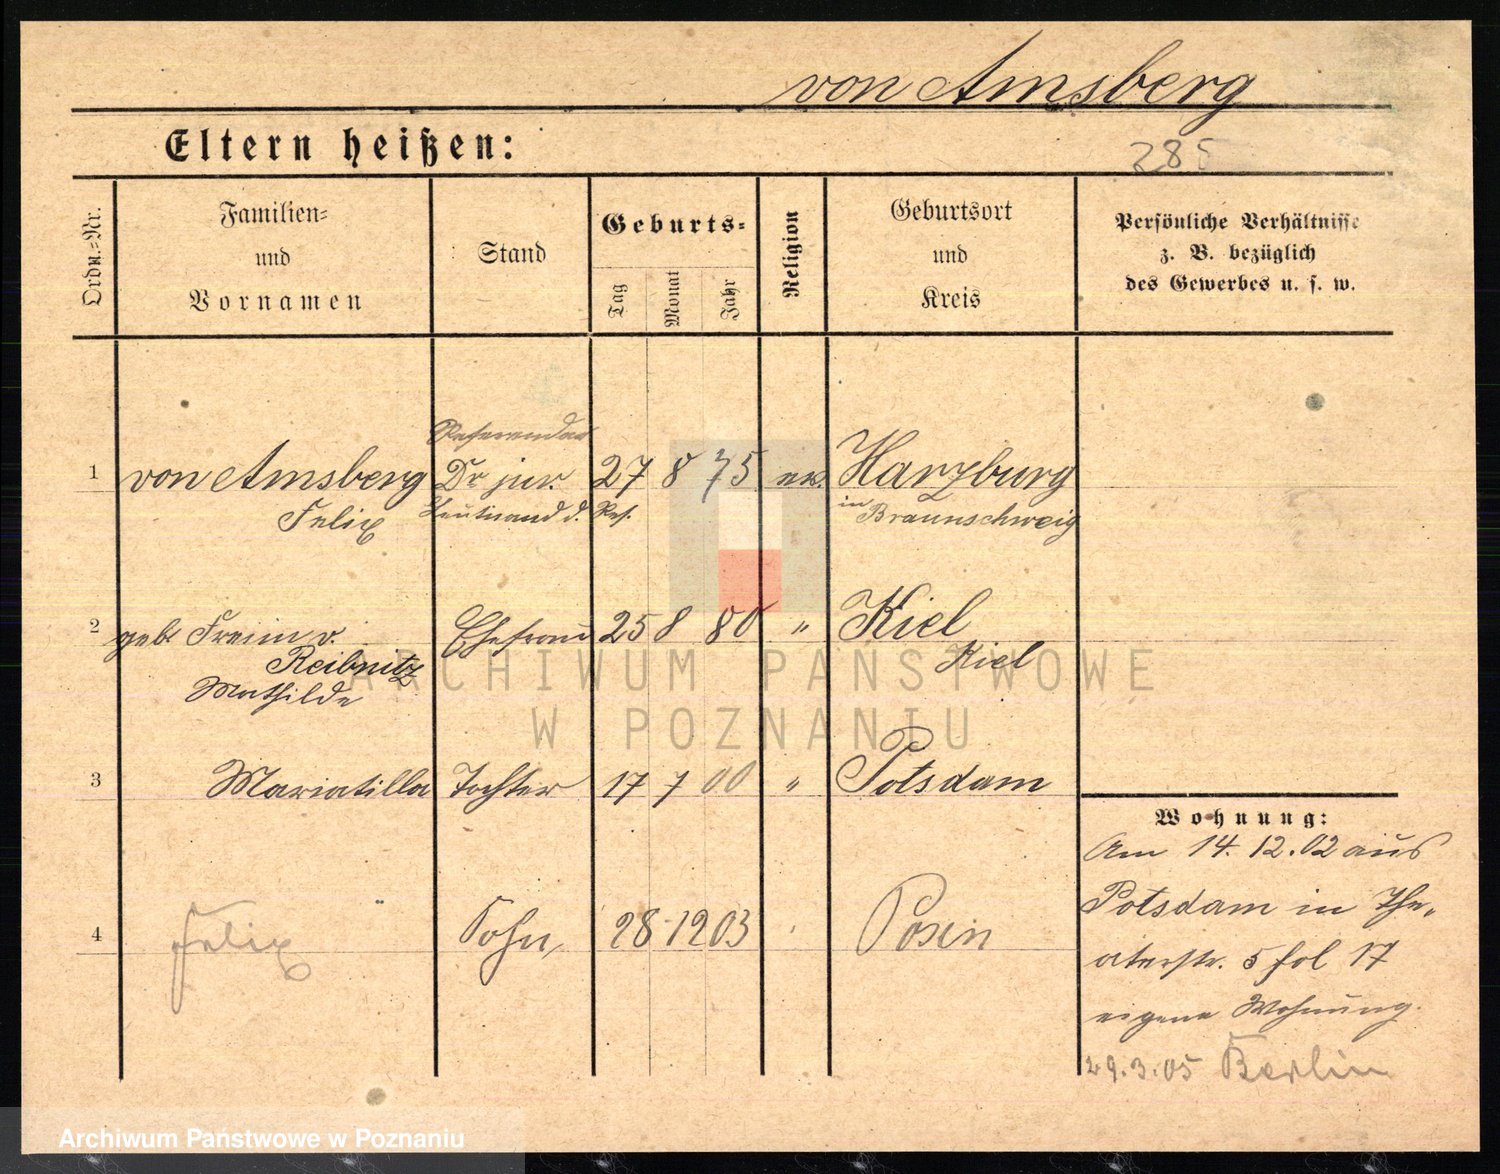 von Amsberg
Eltern heißen:
285
Ordn.=Nr.
Familien=
und
Vornamen
Stand
Geburts=
Tag
Monat
Jahr
Religion
Geburtsort
und
Kreis
Persönliche Verhältnisse
z. B. bezüglich
des Gewerbes u. s. w.
Referendar
1 von Amsberg Dr jur. 27 8 75 ev. Harzburg
Felix Leutnand d. Res. in Braunschweig
2 geb. Freiin v. Ehefrau 25 8 80 " Kiel
Reibnitz Kiel
Mathilde
3 Mariatilla Tochter 17 7 00 " Potsdam
4 Felix Sohn 28 12 03 Posen
Wohnung:
Am 14. 12. 02 aus
Potsdam in The-
aterstr. 5 fol 17
eigene Wohnung.
29.3.05 Berlin
ARCHIWUM PAŃSTWOWE
W POZNANIU
Archiwum Państwowe w Poznaniu